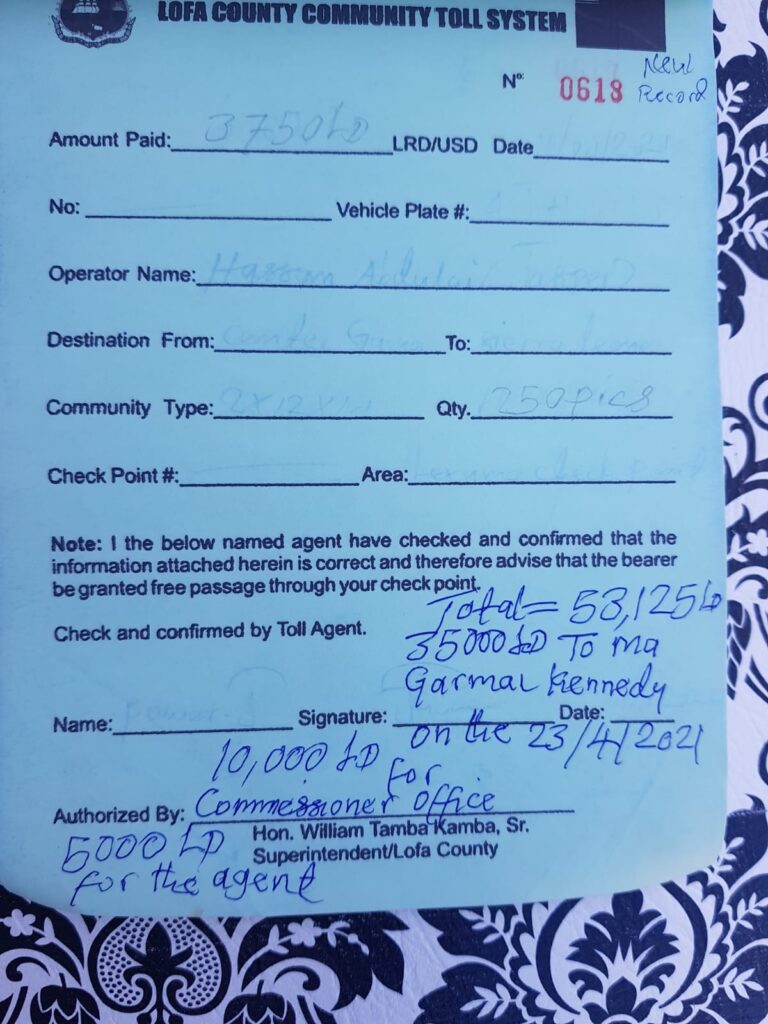 LOFA COUNTY COMMUNITY TOLL SYSTEM
Nº: 0618 New
Record
Amount Paid: 3750LD LRD/USD Date
No: Vehicle Plate #:
Operator Name: Hassan
Destination From: To:
Community Type: 2x12x Qty. 1250pics
Check Point #: Area: check point
Note: I the below named agent have checked and confirmed that the
information attached herein is correct and therefore advise that the bearer
be granted free passage through your check point.
Total = 53,125LD
Check and confirmed by Toll Agent.
35000LD To ma
Garmai Kennedy
Name: Signature: Date:
on the 23/4/2021
10,000 LD for
Authorized By: Commessioner office
Hon. William Tamba Kamba, Sr.
Superintendent/Lofa County
5000 LD
for the agent